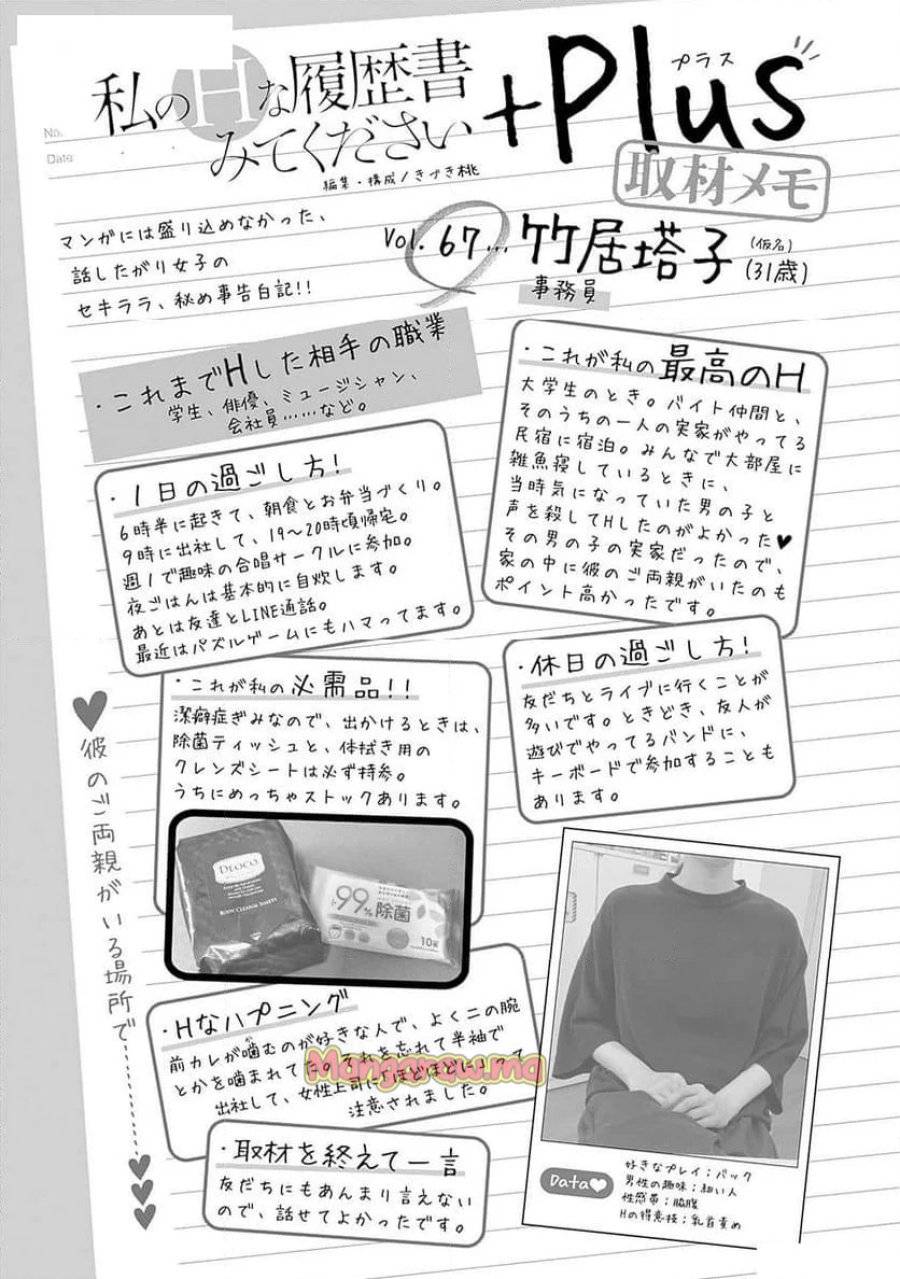 私のHな履歴書
みてください
+Plus
プラス
No.
Date
編集・構成/きづき桃
取材メモ
マンガには盛り込めなかった、
話したがり女子の
セキララ、秘め事告白記!!
Vol. 67... 竹居塔子 (仮名) (31歳)
事務員
・これまでHした相手の職業
学生、俳優、ミュージシャン、
会社員……など。
・これが私の最高のH
大学生のとき。バイト仲間と、
そのうちの一人の実家がやってる
民宿に宿泊。みんなで大部屋に
雑魚寝しているときに、
当時気になっていた男の子と
声を殺してHしたのがよかった♥
その男の子の実家だったので、
家の中に彼のご両親がいたのも
ポイント高かったです。
・1日の過ごし方!
6時半に起きて、朝食とお弁当づくり。
9時に出社して、19〜20時頃帰宅。
週1で趣味の合唱サークルに参加。
夜ごはんは基本的に自炊します。
あとは友達とLINE通話。
最近はパズルゲームにもハマってます。
・これが私の必需品!!
潔癖症ぎみなので、出かけるときは、
除菌ティッシュと、体拭き用の
クレンズシートは必ず持参。
うちにめっちゃストックあります。
DEOCO
BODY CLEANSE SHEETS
99%除菌
10枚
・休日の過ごし方!
友だちとライブに行くことが
多いです。ときどき、友人が
遊びでやってるバンドに、
キーボードで参加することも
あります。
♥彼のご両親がいる場所で
・Hなハプニング
前カレが噛むのが好きな人で、よく二の腕
か
とかを噛まれてたのそれを忘れて半袖で
出社して、女性上司に
注意されました。
Mangaraw.ma
・取材を終えて一言
友だちにもあんまり言えない
ので、話せてよかったです。
Data♥
好きなプレイ:バック
男性の趣味:細い人
性感帯:脇腹
Hの得意技:乳首責め